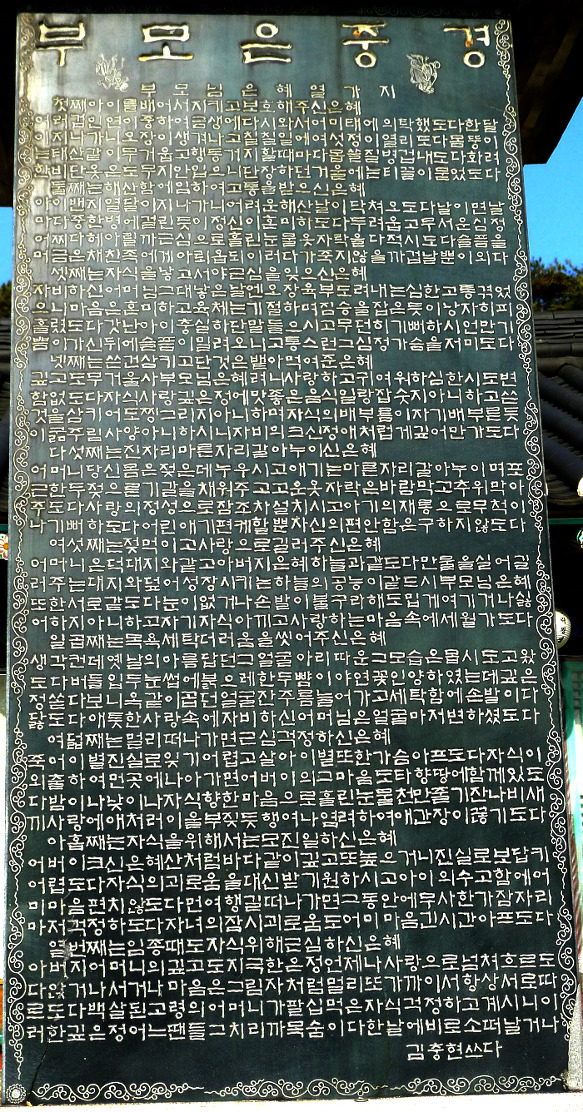 부모은중경
부모님은혜열가지
첫째아이를배어서지키고보호해주신은혜
여러겁인연이중하여금생에다시와서어미태에의탁했도다한달
이지나가니오장이생겨나고칠칠일에여섯정이열리도다몸뚱이
는태산같이무거웁고행동거지할때마다몸쓸질병겁내도다화려
한비단옷은도무지안입으니단장하던거울에는티끌이묻었도다
둘째는해산함에임하여고통을받으신은혜
아이밴지열달이지나가니어려운해산날이닥쳐오도다날이면날
마다중한병에걸린듯이정신이혼미하도다두려웁고무서운심정
어찌다헤아릴까근심으로흘린눈물옷자락을다적시도다슬픔을
머금은채친족에게아뢰옵되이러다가죽지않을까겁날뿐이외다
셋째는자식을낳고서야근심을잊으신은혜
자비하신어머님그대낳은날엔오장육부도려내는심한고통겪었
으니마음은혼미하고육체는기절하며짐승을잡은듯이낭자히피
흘렸도다갓난아이충실하단말들으시고무던히기뻐하시언만기
쁨이가신뒤에슬픔이밀려오니고통스런그심정가슴을저미도다
넷째는쓴건삼키고단것은뱉아먹여준은혜
깊고도무거울사부모님은혜려니사랑하고귀여워하심한시도변
함없도다자식사랑깊은정에맛좋은음식일랑잡숫지아니하고쓴
것을삼키어도찡그리지아니하며자식의배부름이자기배부른듯
이굶주림사양아니하시니자비의크신정애처럽게깊어만가도다
다섯째는진자리마른자리갈아누이신은혜
어머니당신몸은젖은데누우시고애기는마른자리갈아누이며포
근한두젖으론기갈을채워주고고운옷자락은바람막고추위막아
주도다사랑의정성으로잠조차설치시고아기의재롱으로무척이
나기뻐하도다어린애기편케할뿐자신의편안함은구하지않도다
여섯째는젖먹이고사랑으로길러주신은혜
어머니은덕대지와같고아버지은혜하늘과같도다만물을실어길
러주는대지와덮어성장시키는하늘의공능이같드시부모님은혜
또한서로같도다눈이없거나손발이불구라해도밉게여기거나싫
어하지아니하고자기자식아끼고사랑하는마음속에세월가도다
일곱째는목욕세탁더러움을씻어주신은혜
생각컨데옛날의아름답던그얼굴아리따운그모습은몹시도고왔
도다버들잎두눈썹에붉으레한두뺨이야연꽃인양하였는데궂은
정쓸다보니옥같이곱던얼굴잔주름늘어가고세탁함에손발이다
닳도다애틋한사랑속에자비하신어머님은얼굴마저변하셨도다
여덟째는멀리떠나가면근심걱정하신은혜
죽어이별진실로잊기어렵고살아이별또한가슴아프도다자식이
외출하여먼곳에나아가면어버이의그마음도타향땅에함께있도
다밤이나낮이나자식향한마음으로흘린눈물천만줄기잔나비새
끼사랑에애처러이울부짖듯행여나염려하여애간장이끊기도다
아홉째는자식을위해서는모진일하신은혜
어버이크신은혜산처럼바다같이깊고또높으거니진실로보답키
어렵도다자식의괴로움을대신받기원하시고아이의수고함에어
미마음편치않도다먼여행길떠나가면그동안에무사한가잠자리
마저걱정하도다자녀의잠시괴로움도어미마음긴시간아프도다
열번째는임종때도자식위해근심하신은혜
아버지어머니의깊고도지극한은정언제나사랑으로넘쳐흐르도
다앉거나서거나마음은그림자처럼멀리또가까이서항상서로따
르도다백살된고령의어머니가팔십먹은자식걱정하고계시니이
러한깊은정어느땐들그치리까목숨이다한날에비로소떠날거나
김충현쓰다